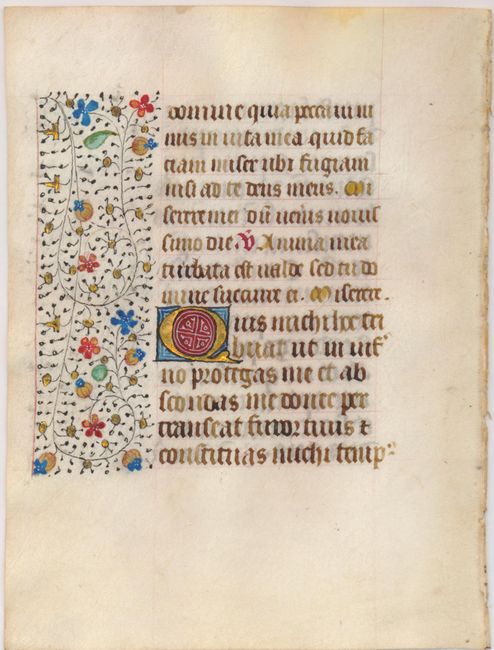 domine quia peccaui ni
mis in uita mea quid fa
ciam miser ubi fugiam
nisi ad te deus meus. Mi
serere mei dū ueneris nouis
simo die. V Anima mea
turbata est ualde sed tu do
mine succurre ei. Miserere.
Quis michi hoc tri
buat ut in inf
no protegas me et ab
scondas me donec per
transeat furor tuus ⁊
constituas michi temp